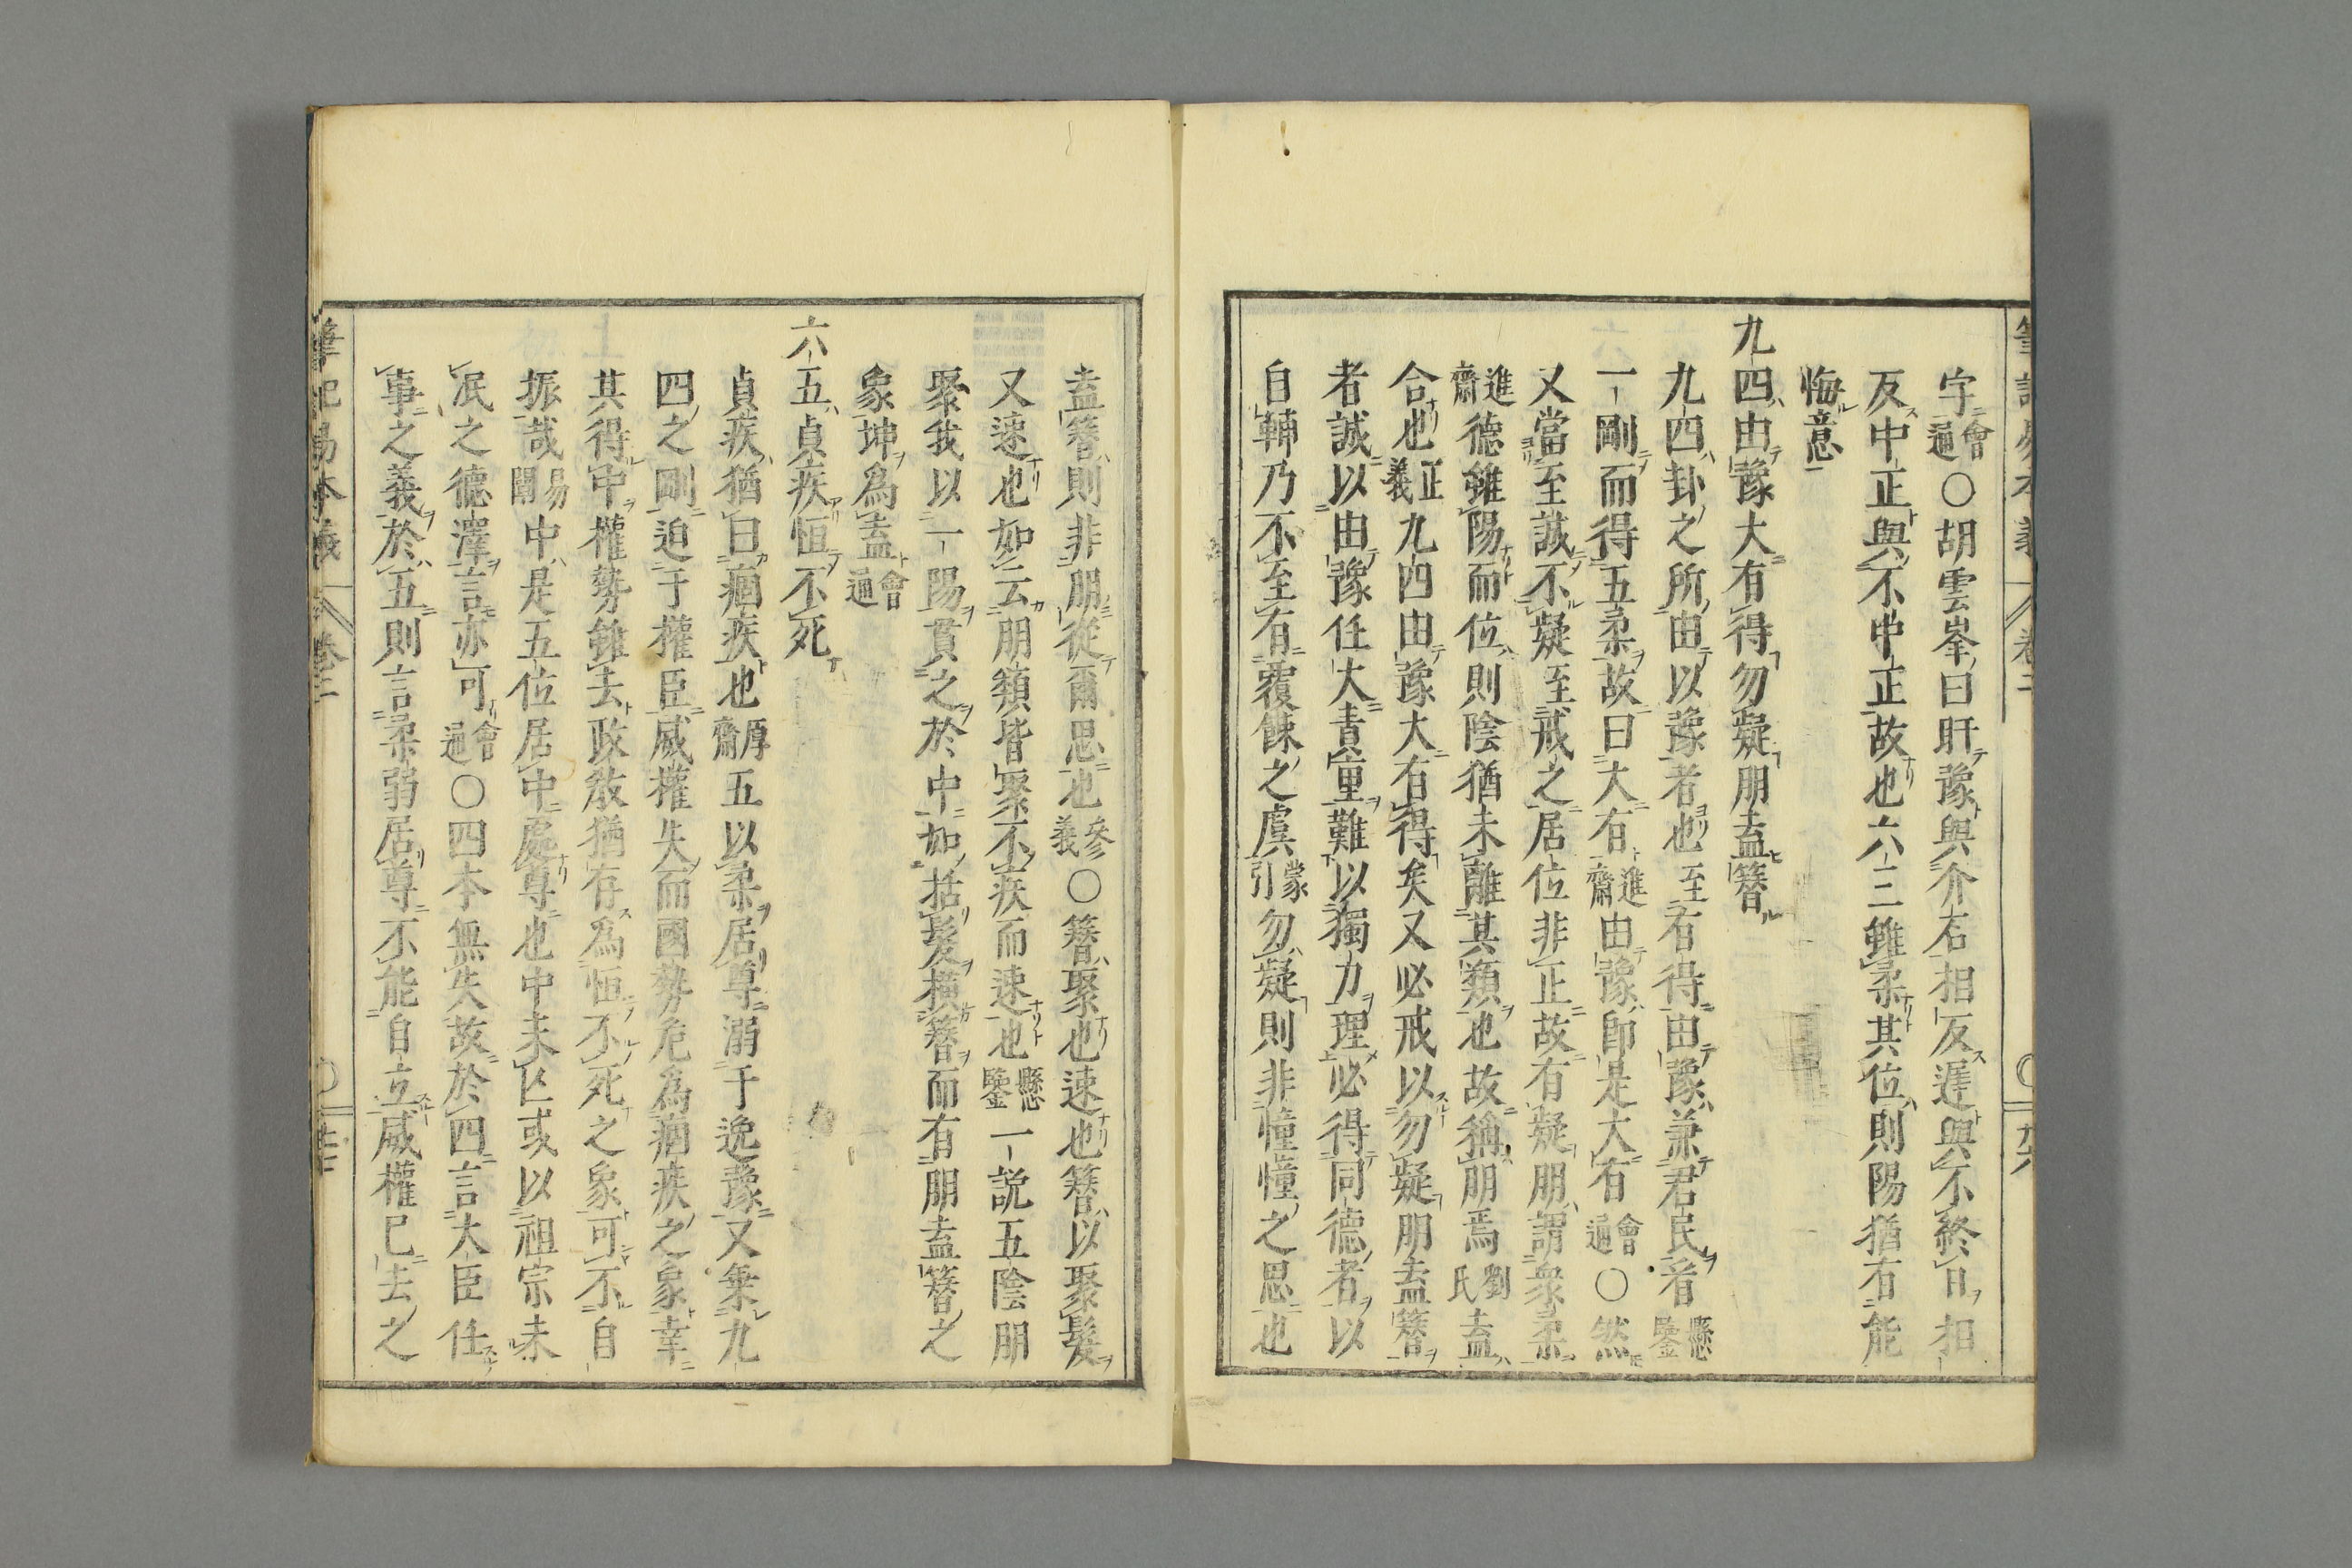 字會通〇胡雲峯曰盱豫與介石相反遲與不終日相
反中正與不中正故也六三雖柔其位則陽猶有能
悔意
九四由豫大有得勿疑朋盍簪
九四卦之所由以豫者也至有得由豫兼君民者懸鑒
一剛而得五柔故曰大有進齋由豫即是大有會通〇然
又當至誠不疑至戒之居位非正故有疑朋謂衆柔
進齋德雖陽而位則陰猶未離其類也故稱朋焉劉氏盍
合也正義九四由豫大有得矣又必戒以勿疑朋盍簪
者誠以由豫任大責重難以獨力理必得同德者以
自輔乃不至有覆餗之虞蒙引勿疑則非憧憧之思也
盍簪則非朋從爾思也參義〇簪聚也速也簪以聚髮
又速也如云朋類皆聚不疾而速也懸鑒一說五陰朋
聚我以一陽貫之於中如括髮横簪而有朋盍簪之
象坤為盍會通
六五貞疾恒不死
貞疾猶曰痼疾也厚齋五以柔居尊溺于逸豫又乗九
四之剛迫于權臣威權失而國勢危為痼疾之象幸
其得中權勢雖去政敎猶存為恒不死之象可不自
振哉易闡中是五位居中處尊也中未亾或以祖宗未
泯之德澤言亦可會通〇四本無失故於四言大臣任
事之義於五則言柔弱居尊不能自立威權已去之
筆記易本義 卷二